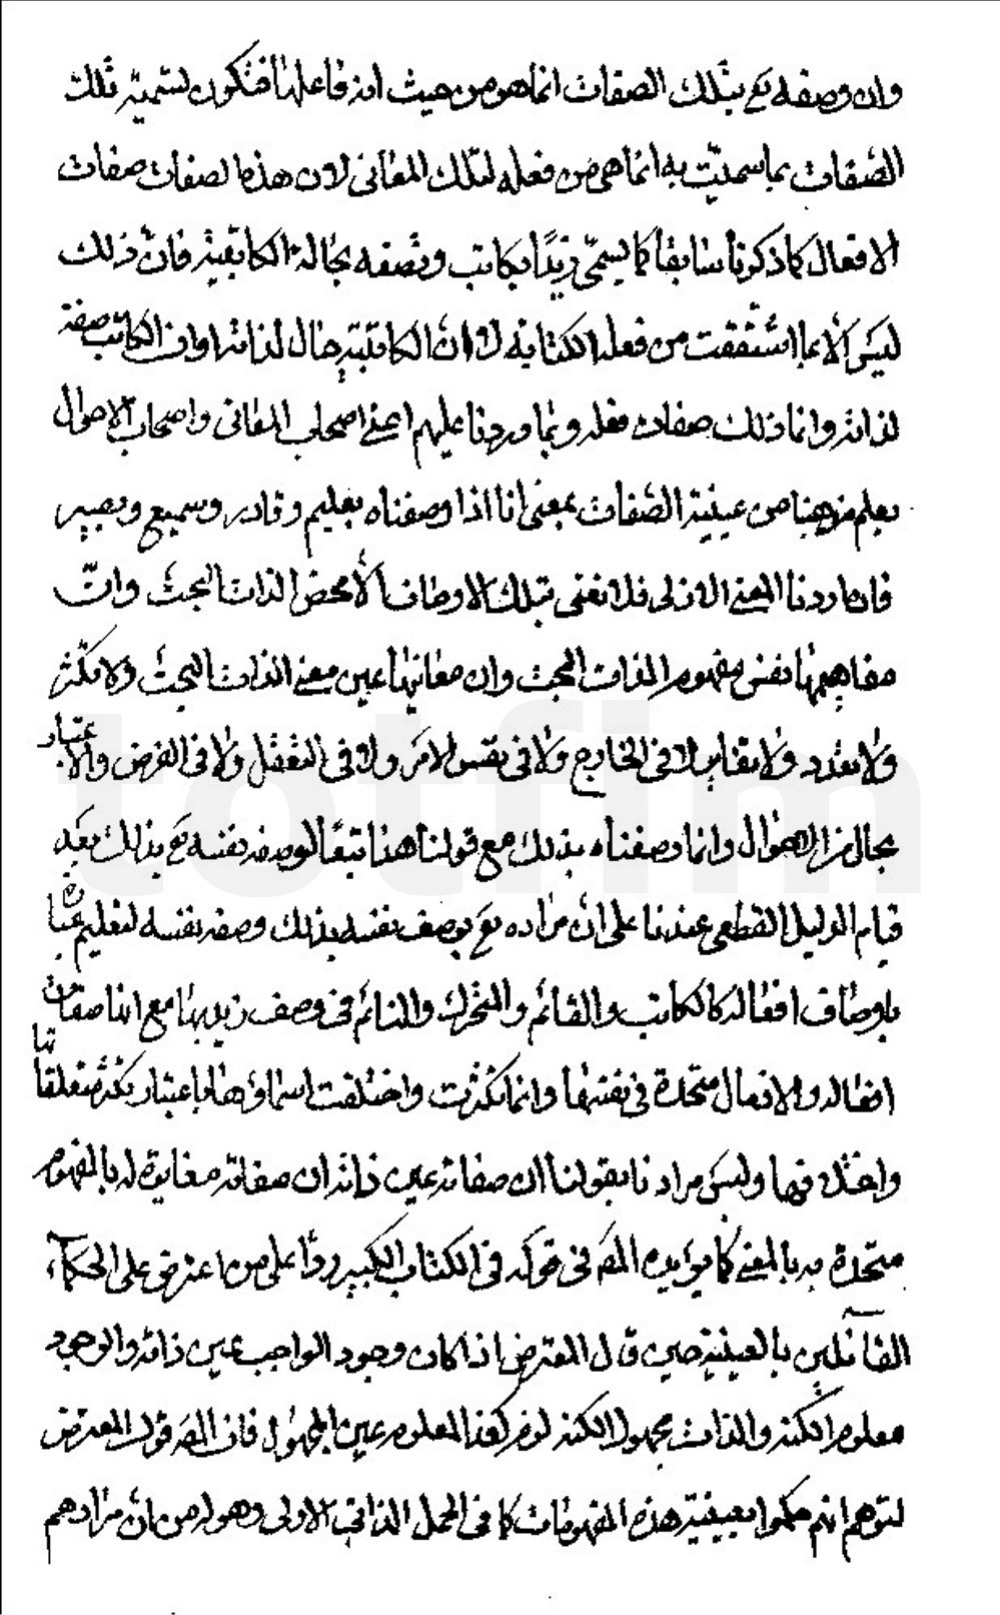 وان وصفه تع بتلك الصفات انما هو من حيث انه فاعلها فتكون تسمية تلك
الصفات بما سميت به انما هي من فعله لتلك المعاني لان هذه الصفات صفات
الافعال كما ذكرنا سابقا كما يسمى زيدا بكاتب وتصفه بحالة الكاتبية فان ذلك
ليس الا بما اشتققت من فعله الكتابة لا ان الكاتبية حال لذاته او ان الكاتب صفة
لذاته وانما ذلك صفات فعله وبما وردنا عليهم اعني اصحاب المعاني واصحاب الاحوال
يعلم مذهبنا من عينية الصفات بمعنى انا اذا وصفناه بعليم وقادر وسميع وبصير
فان اردنا المعنى الازلي فلا نعني بتلك الاوصاف الا محض الذات البحت وان
مفاهيمها نفس مفهوم الذات البحت وان معانيها عين معنى الذات البحت ولا تكثر
ولا تعدد ولا تغاير لا في الخارج ولا في نفس الامر ولا في التعقل ولا في الفرض والاعتبار
بحال من الاحوال وانما وصفناه بذلك مع قولنا هذا تبعا لوصفه نفسه تع بذلك بعد
قيام الدليل القطعي عندنا على ان مراده تع بوصف نفسه بذلك وصفه نفسه لتعليم عباده
باوصاف افعاله كالكاتب والقائم والمتحرك والنائم في وصف زيد بها مع انها صفات
افعاله والافعال متحدة في نفسها وانما تكثرت واختلفت اسماؤها باعتبار تكثر متعلقاتها
واختلافها وليس مرادنا بقولنا ان صفاته عين ذاته ان صفاته مغايرة له بالمفهوم
متحدة به بالمعنى كما يؤيده المص في قوله في الكتاب الكبير ردا على من اعترض على الحكماء
القائلين بالعينية حين قال المعترض اذا كان وجود الواجب عين ذاته والوجود
معلوم الكنه والذات مجهول الكنه لزم كون المعلوم عين المجهول فان المص قول المعترض
لتوهم انهم حكموا بعينية هذه المفهومات كما في الحمل الذاتي الاولى وهو لزمن ان مرادهم